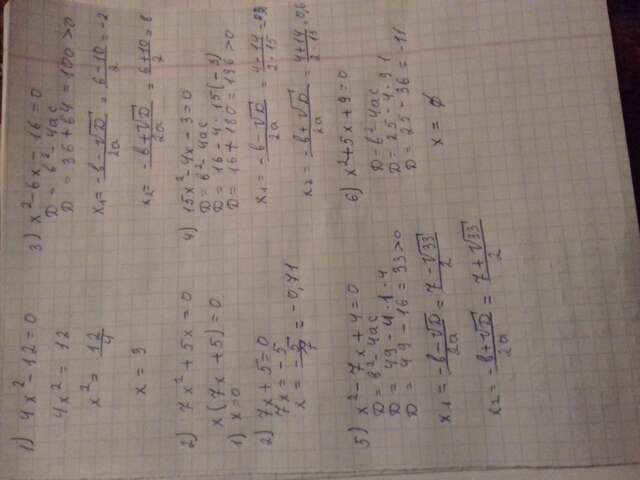 1) 4x² - 12 = 0
4x² = 12
x² = 12/4
x = 3
2) 7x² + 5x = 0
x(7x + 5) = 0
1) x = 0
2) 7x + 5 = 0
7x = -5
x = -5/7 = -0,71
3) x² - 6x - 16 = 0
D = b² - 4ac
D = 36 + 64 = 100 > 0
x₁ = (-b - √D)/2a = (6 - 10)/2 = -2
x₂ = (-b + √D)/2a = (6 + 10)/2 = 8
4) 15x² - 4x - 3 = 0
D = b² - 4ac
D = 16 - 4 · 15(-3)
D = 16 + 180 = 196 > 0
x₁ = (-b - √D)/2a = (4 + 14)/(2 · 15) =
x₂ = (-b + √D)/2a = (4 + 14)/(2 · 15) = 0,6
5) x² - 7x + 4 = 0
D = b² - 4ac
D = 49 - 4 · 1 · 4
D = 49 - 16 = 33 > 0
x₁ = (-b - √D)/2a = (7 - √33)/2
x₂ = (-b + √D)/2a = (7 + √33)/2
6) x² + 5x + 9 = 0
D = b² - 4ac
D = 25 - 4 · 9 · 1
D = 25 - 36 = -11
x = ∅